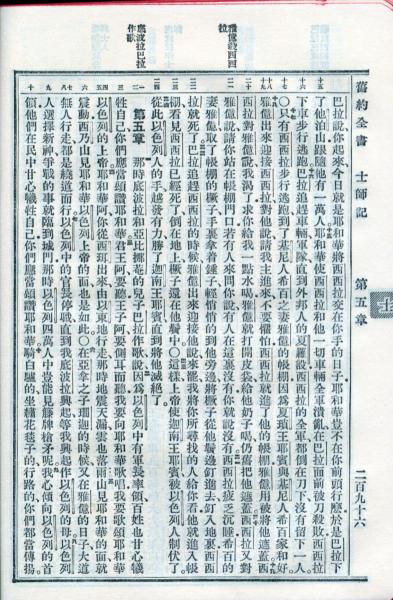 舊約全書 士師記 第五章 二百九十六
巴拉說你起來今日就是耶和華將西西拉交在你手的日子耶和華豈不在你前頭行麼於是巴拉下
了他泊山跟隨他有一萬人耶和華使西西拉和他一切車輛全軍潰亂在巴拉面前被刀殺敗西西拉
下車步行逃跑巴拉追趕車輛軍隊直到外邦人的夏羅設西西拉的全軍都倒在刀下沒有留下一人
〇只有西西拉步行逃跑到了基尼人希百之妻雅億的帳棚因爲夏瑣王耶賓與基尼人希百家和好
雅億出來迎接西西拉對他說請我主進來不要懼怕西西拉就進了他的帳棚雅億用被將他遮蓋西
西拉對雅億說我渴了求你給我一點水喝雅億就打開皮袋給他奶子喝仍舊把他遮蓋西西拉又對
雅億說請你站在帳棚門口若有人來問你說有人在這裏沒有你就說沒有西西拉疲乏沉睡希百的
雅億殺西西拉
妻雅億取了帳棚的橛子手裏拿着錘子輕悄悄的到他旁邊將橛子從他鬢邊釘進去釘入地裏西西
拉就死了巴拉追趕西西拉的時候雅億出來迎接他說來罷我將你所尋找的人給你看他就進入帳
棚看見西西拉已經死了倒在地上橛子還在他鬢中〇這樣上帝使迦南王耶賓被以色列人制伏了
從此以色列人的手越發有力勝了迦南王耶賓直到將他滅絕了
底波拉巴拉作歌
第五章 那時底波拉和亞比挪菴的兒子巴拉作歌說因爲以色列中有軍長率領百姓也甘心犧
牲自己你們應當頌讚耶和華君王阿要聽王子阿要側耳而聽我要向耶和華歌唱我要歌頌耶和華
以色列的上帝耶和華阿你從西珥出來由以東地行走那時地震天漏雲也落雨山見耶和華的面就
震動西乃山見耶和華以色列上帝的面也是如此〇在亞拿之子珊迦的時候又在雅億的日子大道
無人行走都是繞道而行以色列中的官長停職直到我底波拉興起等我興起作以色列的母以色列
人選擇新神爭戰的事就臨到城門那時以色列四萬人中豈能見籐牌槍矛呢我心傾向以色列的首
領他們在民中甘心犧牲自己你們應當頌讚耶和華騎白驢的坐繡花毯子的行路的你們都當傳揚